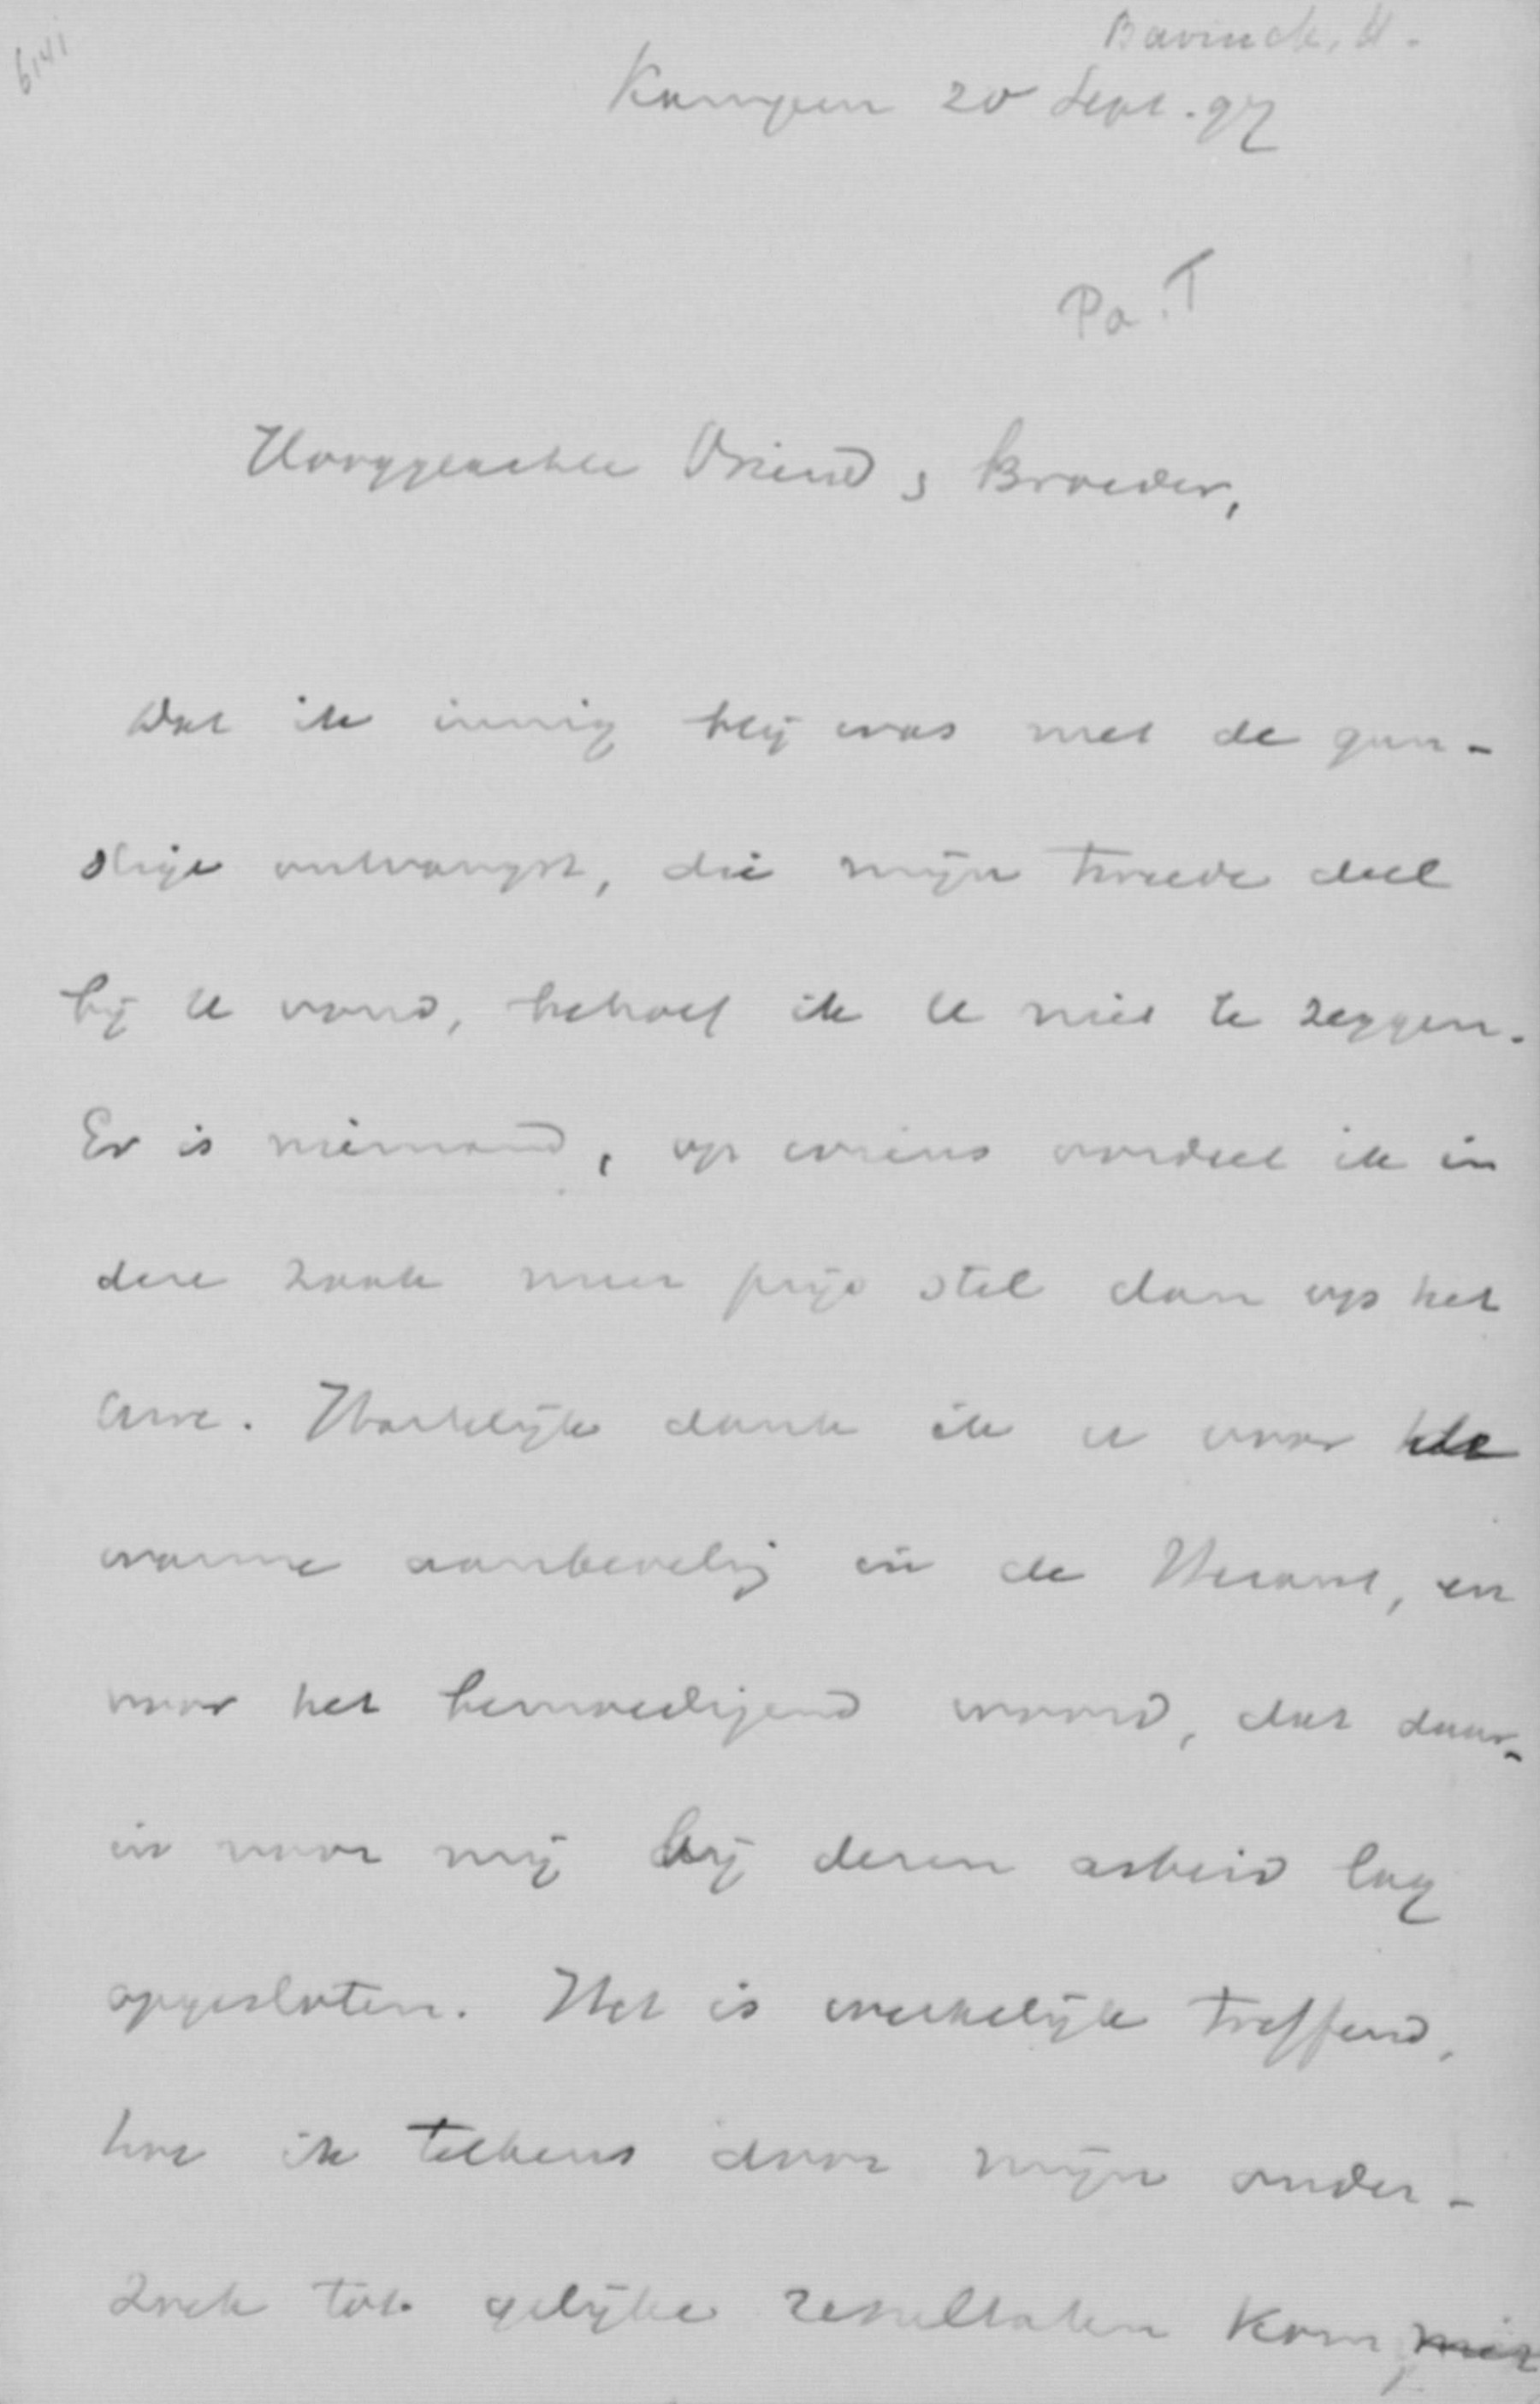 6141
Bavinck, H.
Kampen 20 Sept. 97
Pa. T
Hooggeachte Vriend & Broeder,
Dat ik innig blij was met de gun-
stige ontvangst, die mijn tweede deel
bij U vond, behoef ik U niet te zeggen.
Er is niemand, op wiens oordeel ik in
deze zaak meer prijs stel dan op het
Uwe. Hartelijk dank ik U voor de
warme aanbeveling in de Heraut, en
voor het bemoedigend woord, dat daar-
in voor mij bij dezen arbeid lag
opgesloten. Het is werkelijk treffend,
hoe ik telkens door mijn onder-
zoek tot gelijke resultaten kom